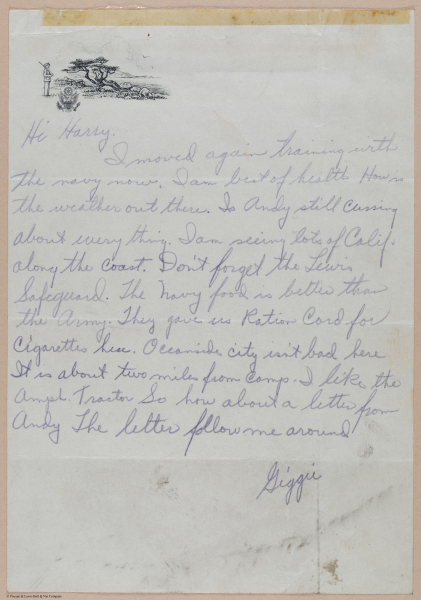 Hi Harry.
I moved again training with
the navy now. I am best of health How is
the weather out there. Is Andy still cussing
about every thing. I am seeing lots of Calif.
along the coast. Don't forget the Lewis
Safeguard. The Navy food is better than
the Army. They gave us Ration Card for
Cigarettes here. Oceanside city isn't bad here
It is about two miles from camp. I like the
Ampl. Tractor So how about a letter from
Andy The letter follow me around
Giggie